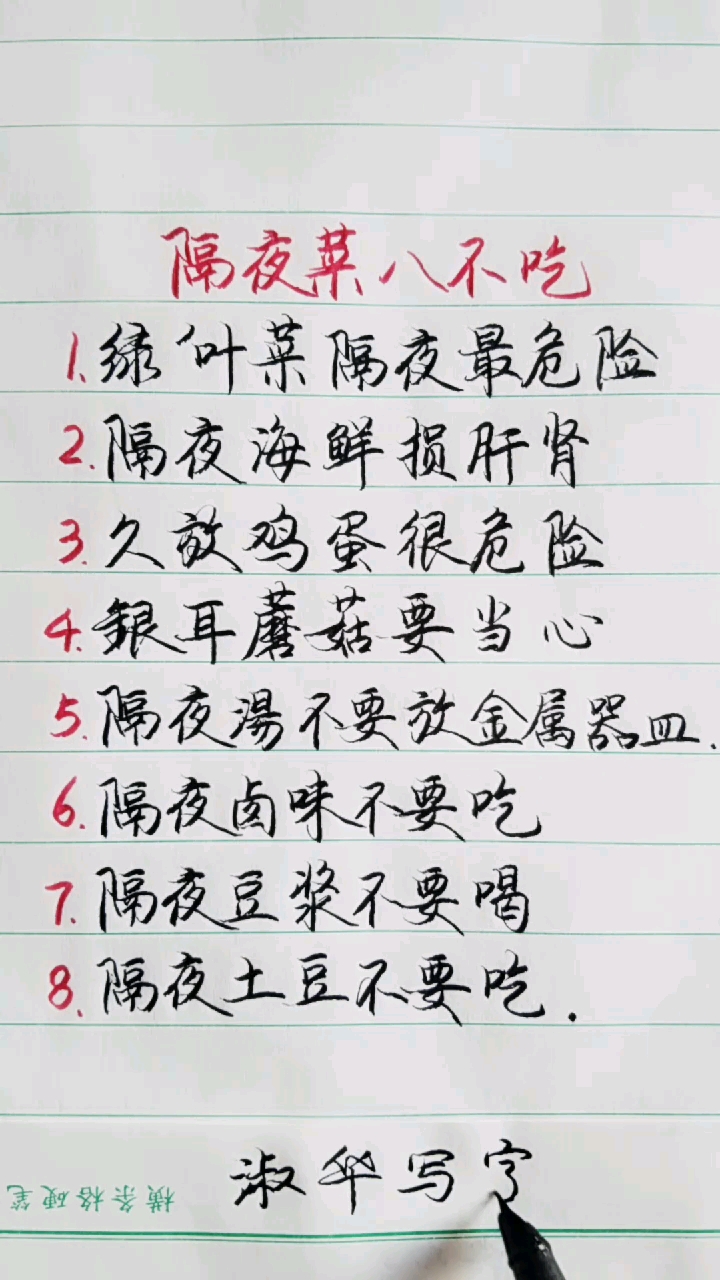 隔夜菜八不吃
1.绿叶菜隔夜最危险
2.隔夜海鲜损肝肾
3.久放鸡蛋很危险
4.銀耳蘑菇要当心
5.隔夜湯不要放金属器皿.
6.隔夜卤味不要吃
7.隔夜豆浆不要喝
8.隔夜土豆不要吃.
淑华写字
横条格硬笔